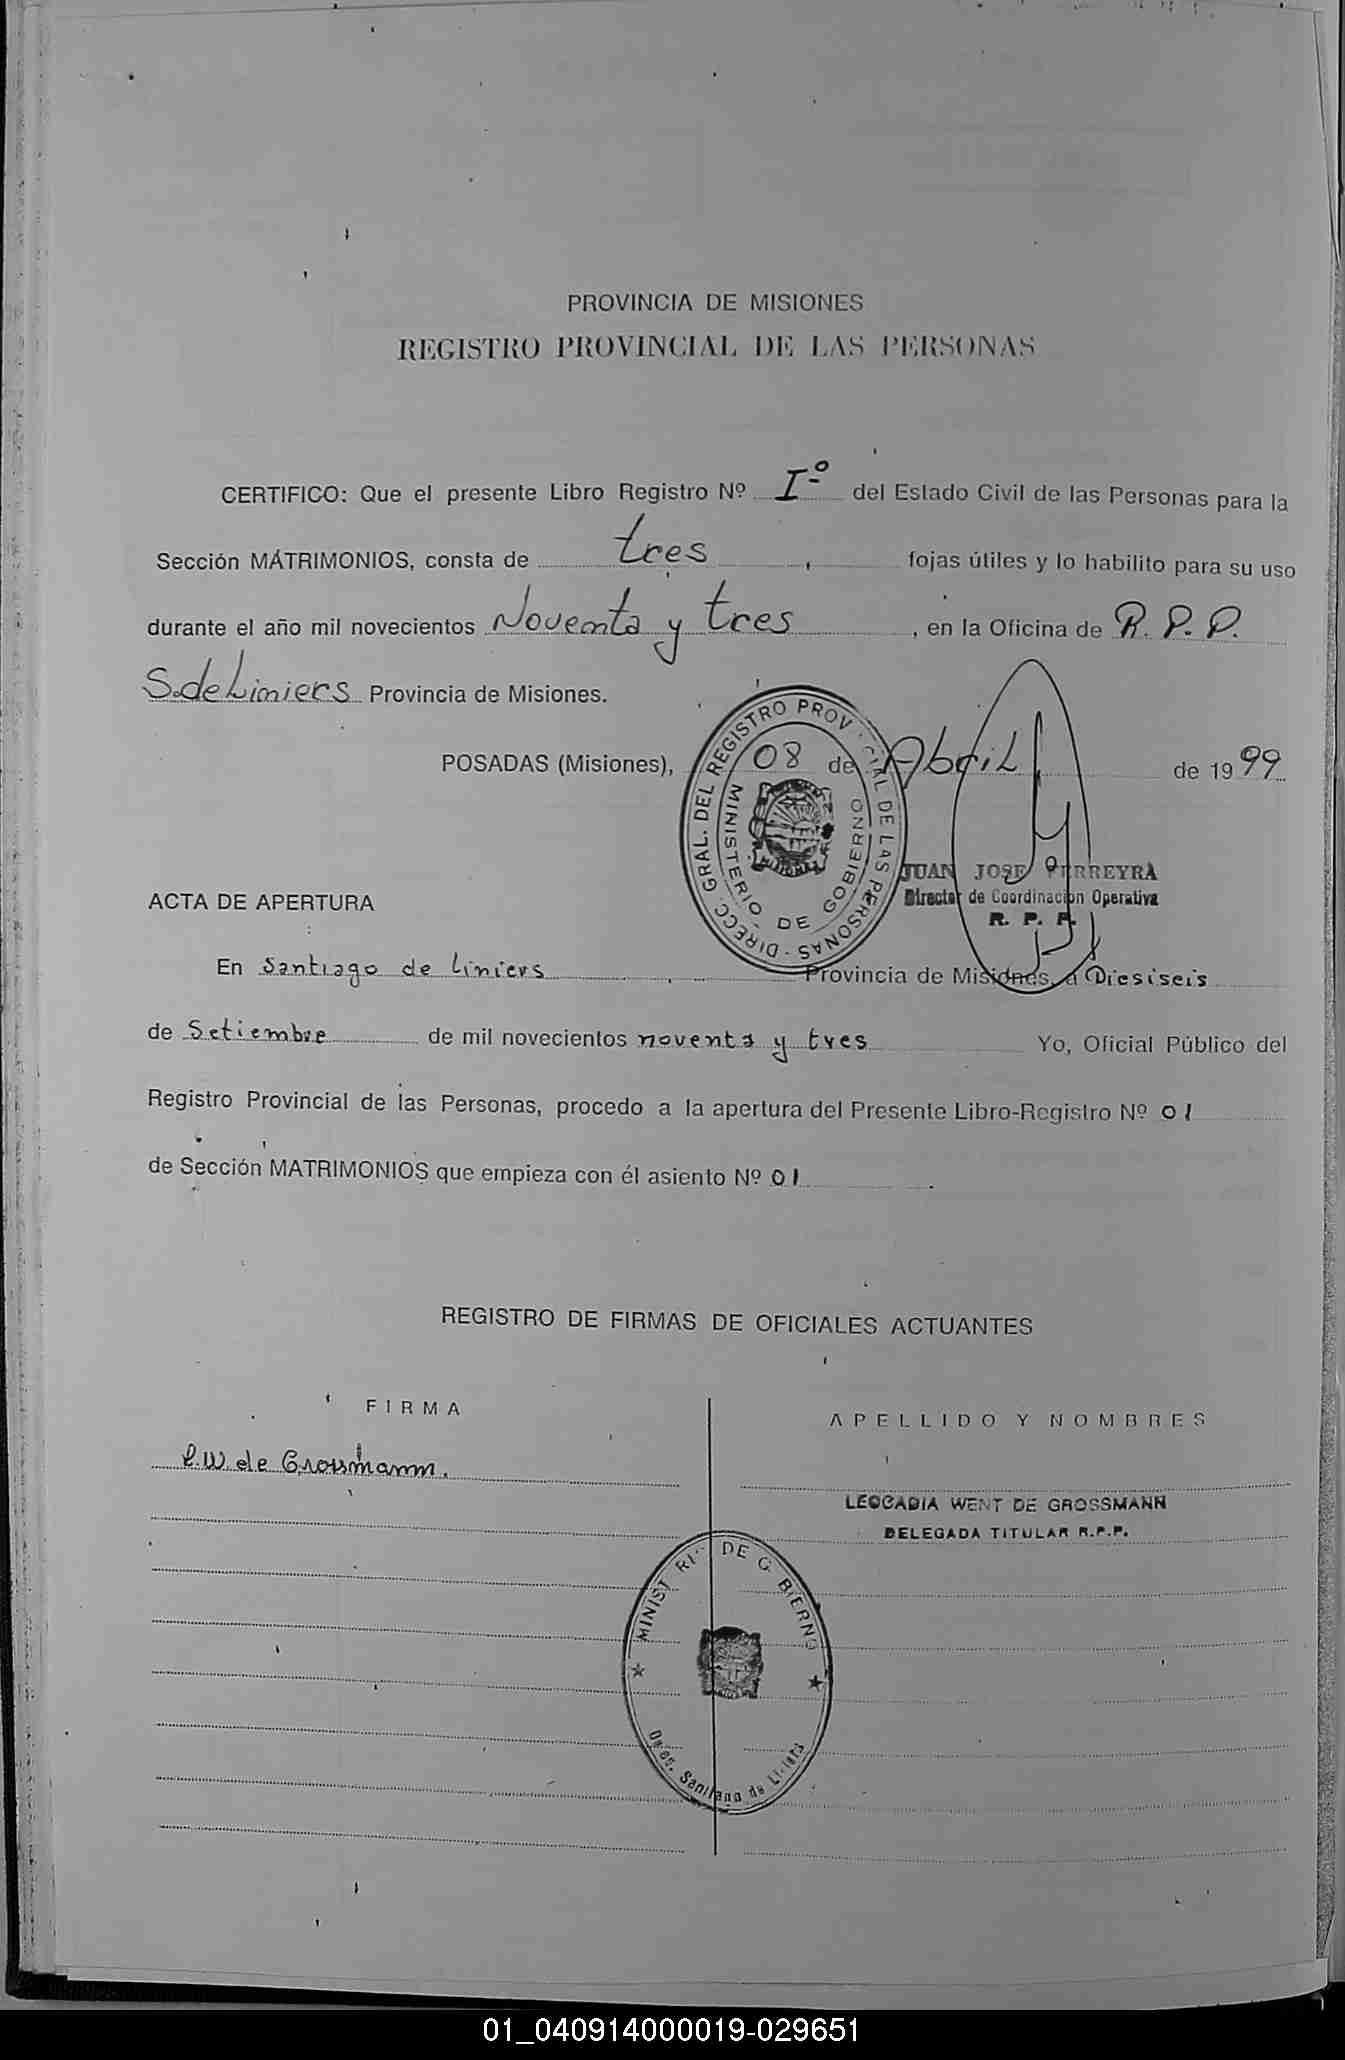 PROVINCIA DE MISIONES
REGISTRO PROVINCIAL DE LAS PERSONAS
CERTIFICO: Que el presente Libro Registro Nº I.º del Estado Civil de las Personas para la
Sección MATRIMONIOS, consta de tres, fojas útiles y lo habilito para su uso
durante el año mil novecientos Noventa y tres, en la Oficina de R. P. P.
S. de Liniers Provincia de Misiones.
POSADAS (Misiones), 08 de Abril de 1999
DIRECC. GRAL. DEL REGISTRO PROV CIAL DE LAS PERSONAS
MINISTERIO DE GOBIERNO
JUAN JOSE PERREYRA
Director de Coordinacion Operativa
R. P. P.
ACTA DE APERTURA
En Santiago de liniers Provincia de Misiones, a Diesiseis
de Setiembre de mil novecientos noventa y tres Yo, Oficial Público del
Registro Provincial de las Personas, procedo a la apertura del Presente Libro-Registro Nº 01
de Sección MATRIMONIOS que empieza con él asiento Nº 01.
REGISTRO DE FIRMAS DE OFICIALES ACTUANTES
FIRMA
APELLIDO Y NOMBRES
L.W. de Grossmann.
LEOCADIA WENT DE GROSSMANN
DELEGADA TITULAR R.P.P.
MINISTERIO DE GOBIERNO
Santiago de Liniers
01_040914000019-029651